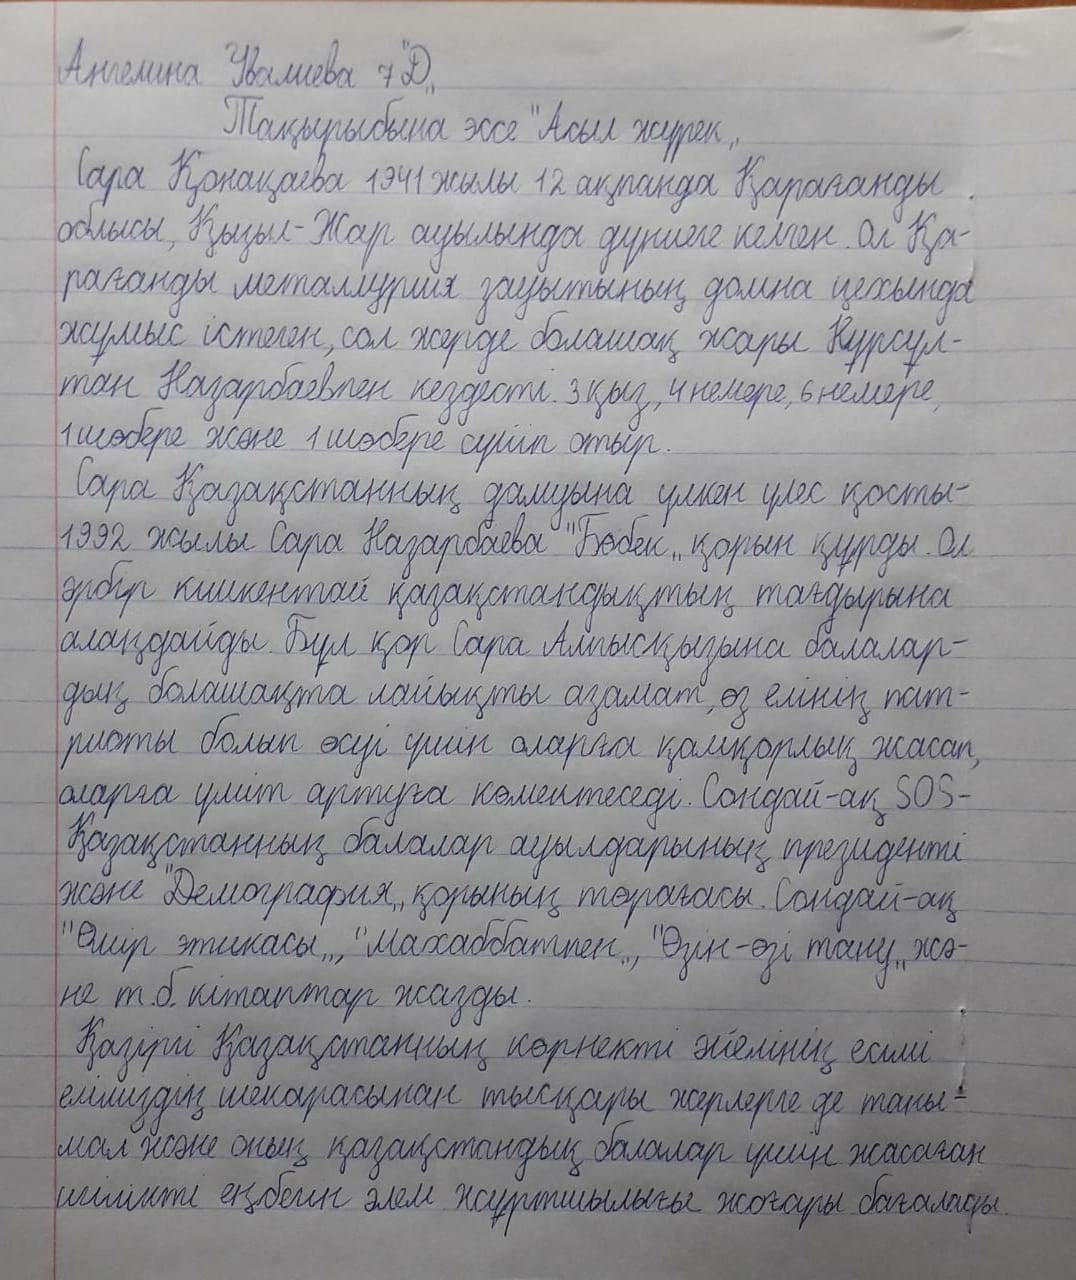 Ангелина Увалиева 7"Д„
Тақырыбына эссе "Асыл жүрек„
Сара Қонақаева 1941 жылы 12 ақпанда Қарағанды
облысы, Қызыл-Жар ауылында дүниеге келген. Ол Қа-
рағанды металлургия зауытының домна цехында
жұмыс істеген, сол жерде болашақ жары Нұрсұл-
тан Назарбаевпен кездесті. 3 қыз, 4 немере, 6 немере,
1 шөбере және 1 шөбере сүйіп отыр.
Сара Қазақстанның дамуына үлкен үлес қосты-
1992 жылы Сара Назарбаева "Бөбек„ қорын құрды. Ол
әрбір кишкентай қазақстандықтың тағдырына
алаңдайды. Бұл қор Сара Алпысқызына балалар-
дың болашақта лайықты азамат, өз елінің пат-
риоты болып өсуі үшін оларға қамқорлық жасап,
оларға үміт артуға көмектеседі. Сондай-ақ SOS-
Қазақстанның балалар ауылдарының президенті
және "Демография„ қорының төрағасы. Сондай-ақ
"Өмір этикасы„, "Махаббатпен„, "Өзін-өзі тану„ жә-
не т.б. кітаптар жазды.
Қазіргі Қазақстанның көрнекті әйелінің есімі
еліміздің шекарасынан тысқары жерлерге де таны-
мал және оның қазақстандық балалар үшін жасаған
игілікті еңбегін әлем жұртшылығы жоғары бағалады.